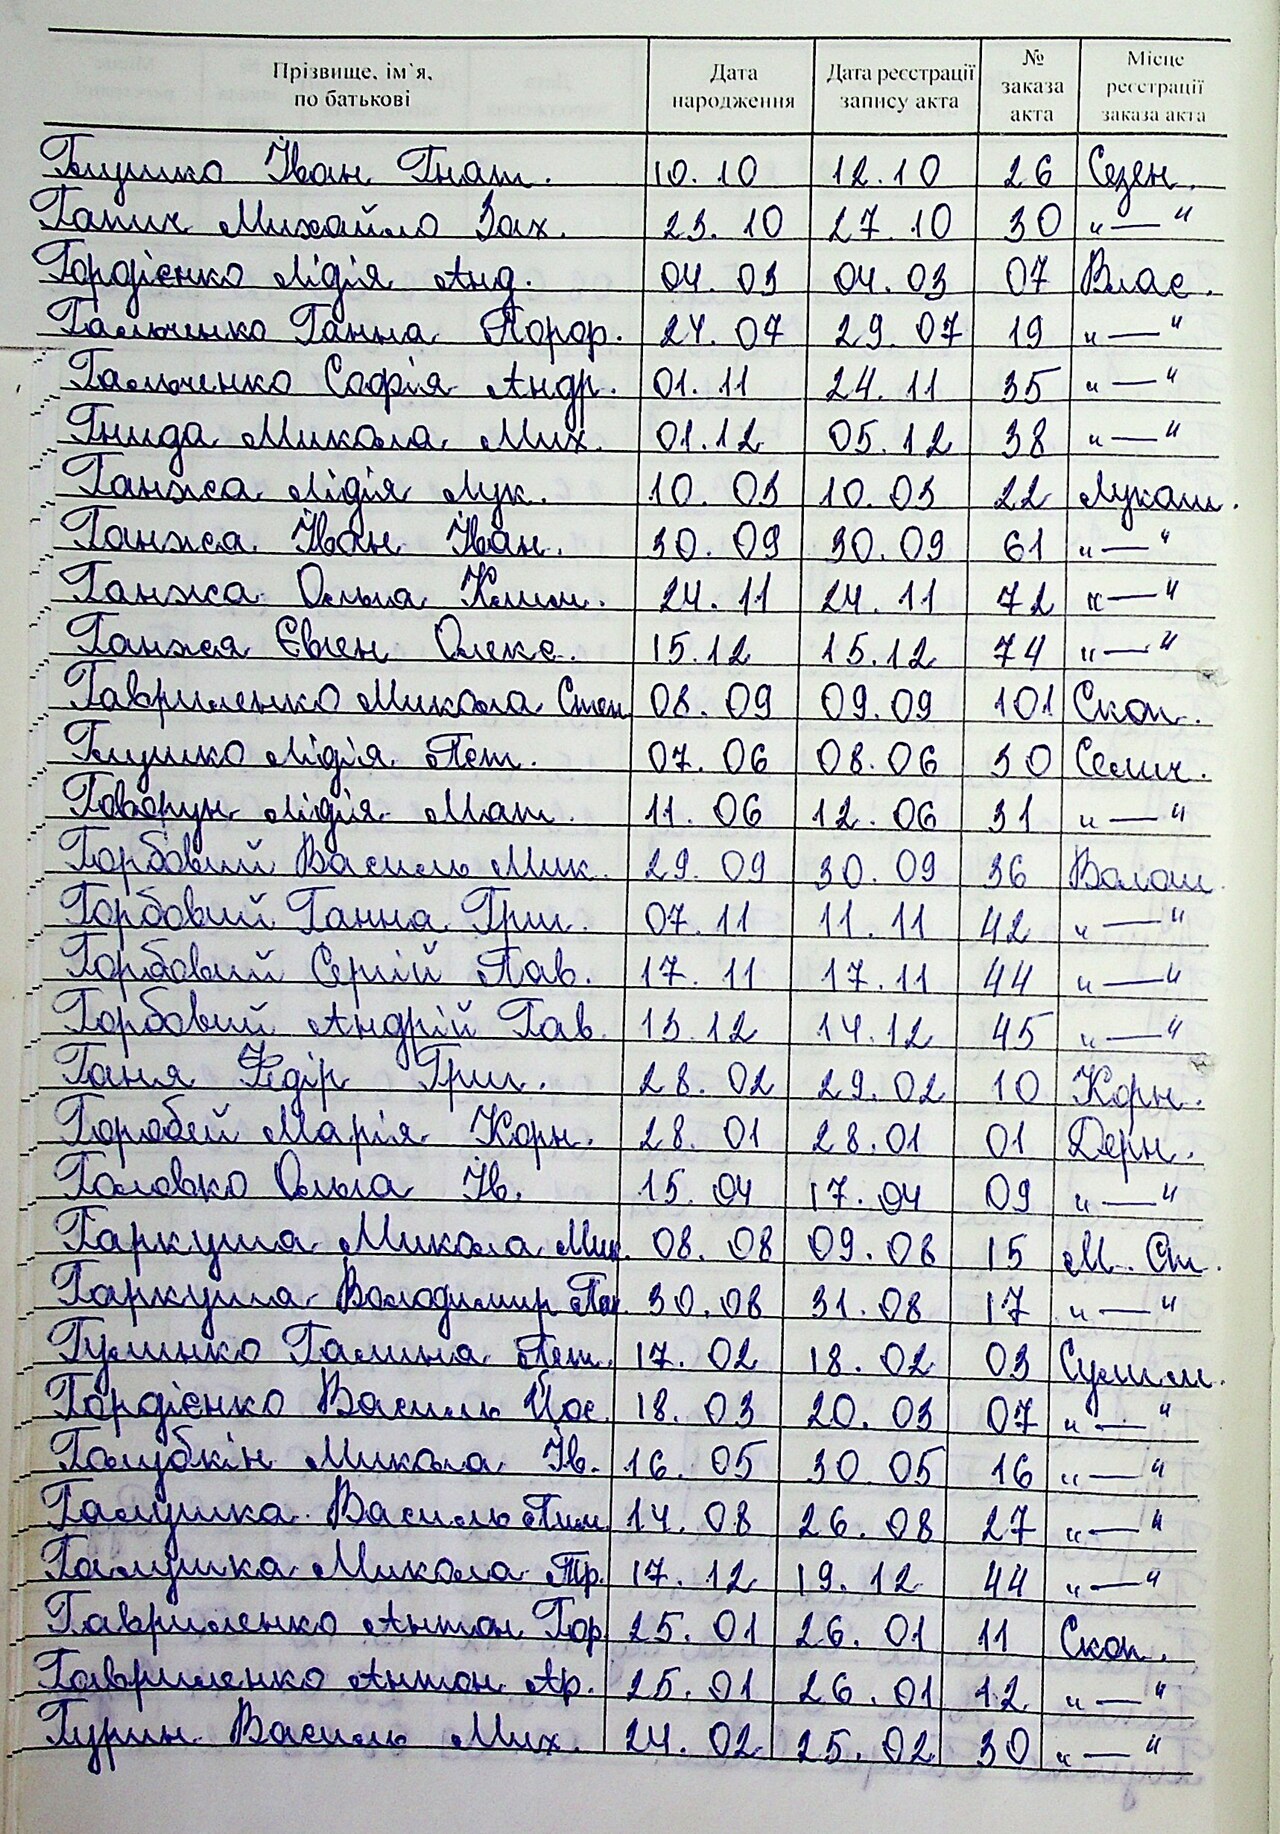 Прізвище, ім`я, по батькові Дата народження Дата реєстрації запису акта № заказа акта Місце реєстрації заказа акта
Глушко Іван Гнат. 10.10 12.10 26 Сезен.
Гапич Михайло Зах. 23.10 27.10 30 „—“
Гордієнко Лідія Анд. 04.03 04.03 07 Влас.
Гальченко Ганна Порф. 27.07 29.07 19 „—“
Гальченко Софія Андр. 01.11 24.11 35 „—“
Гнида Микола Мих. 01.12 05.12 38 „—“
Ганжа Лідія Лук. 10.03 10.03 22 Лукаш.
Ганжа Іван Іван. 30.09 30.09 61 „—“
Ганжа Ольга Клим. 24.11 24.11 72 „—“
Ганжа Євген Олекс. 15.12 15.12 74 „—“
Гавриленко Микола Степ. 08.09 09.09 101 Скоп.
Глушко Лідія Пет. 07.06 08.06 30 Семич.
Говорун Лідія Мат. 11.06 12.06 31 „—“
Горбовий Василь Мик. 29.09 30.09 36 Волош.
Горбовий Ганна Гри. 07.11 11.11 42 „—“
Горбовий Сергій Пав. 17.11 17.11 44 „—“
Горбовий Андрій Гав. 13.12 14.12 45 „—“
Ганя Федір Григ. 28.02 29.02 10 Корн.
Горобей Марія Корн. 28.01 28.01 01 Дерн.
Головко Ольга Ів. 15.04 17.04 09 „—“
Гаркуша Микола Мик. 08.08 09.08 15 М. Ст.
Гаркуша Володимир 30.08 31.08 17 „—“
Гулинко Галина Пет. 17.02 18.02 03 Сулим.
Гордієнко Василь Йос. 18.03 20.03 07 „—“
Голубкін Микола Ів. 16.05 30.05 16 „—“
Галушка Василь Пим. 14.08 26.08 27 „—“
Галушка Микола Тр. 17.12 19.12 44 „—“
Гавриленко Антон Гор. 25.01 26.01 11 Скоп.
Гавриленко Антон Ар. 25.01 26.01 12 „—“
Гурин Василь Мих. 24.02 25.02 30 „—“